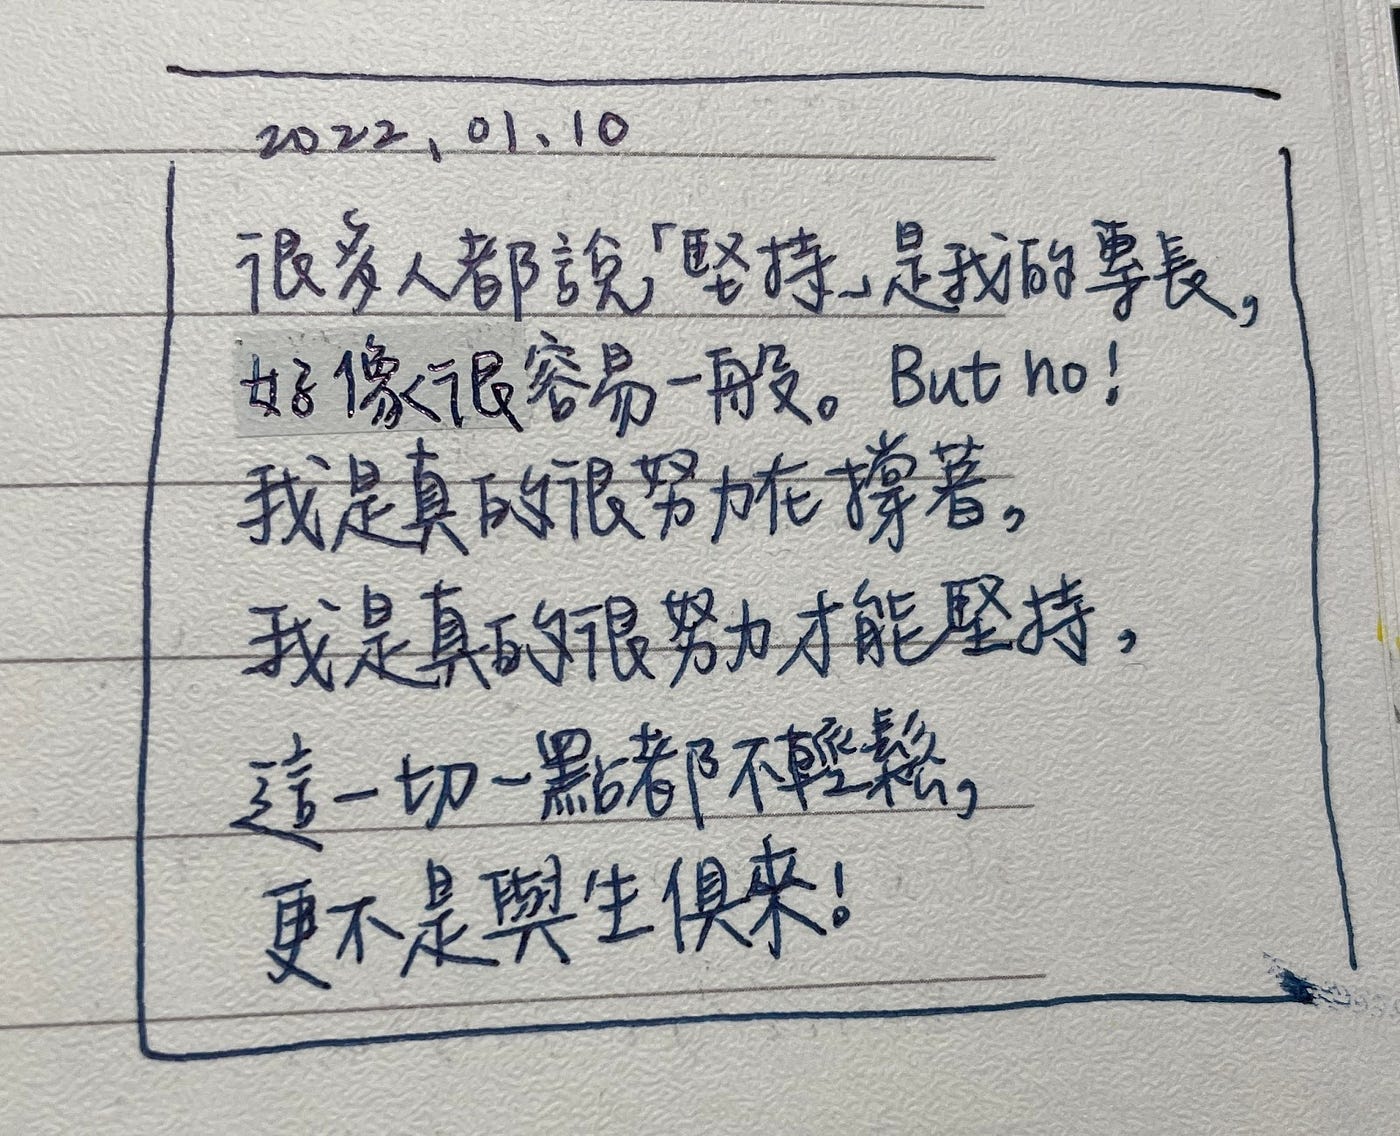 2022、01、10
很多人都說「堅持」是我的專長,
好像很容易一般。But no!
我是真的很努力在撐著。
我是真的很努力才能堅持,
這一切一點都不輕鬆,
更不是與生俱來!